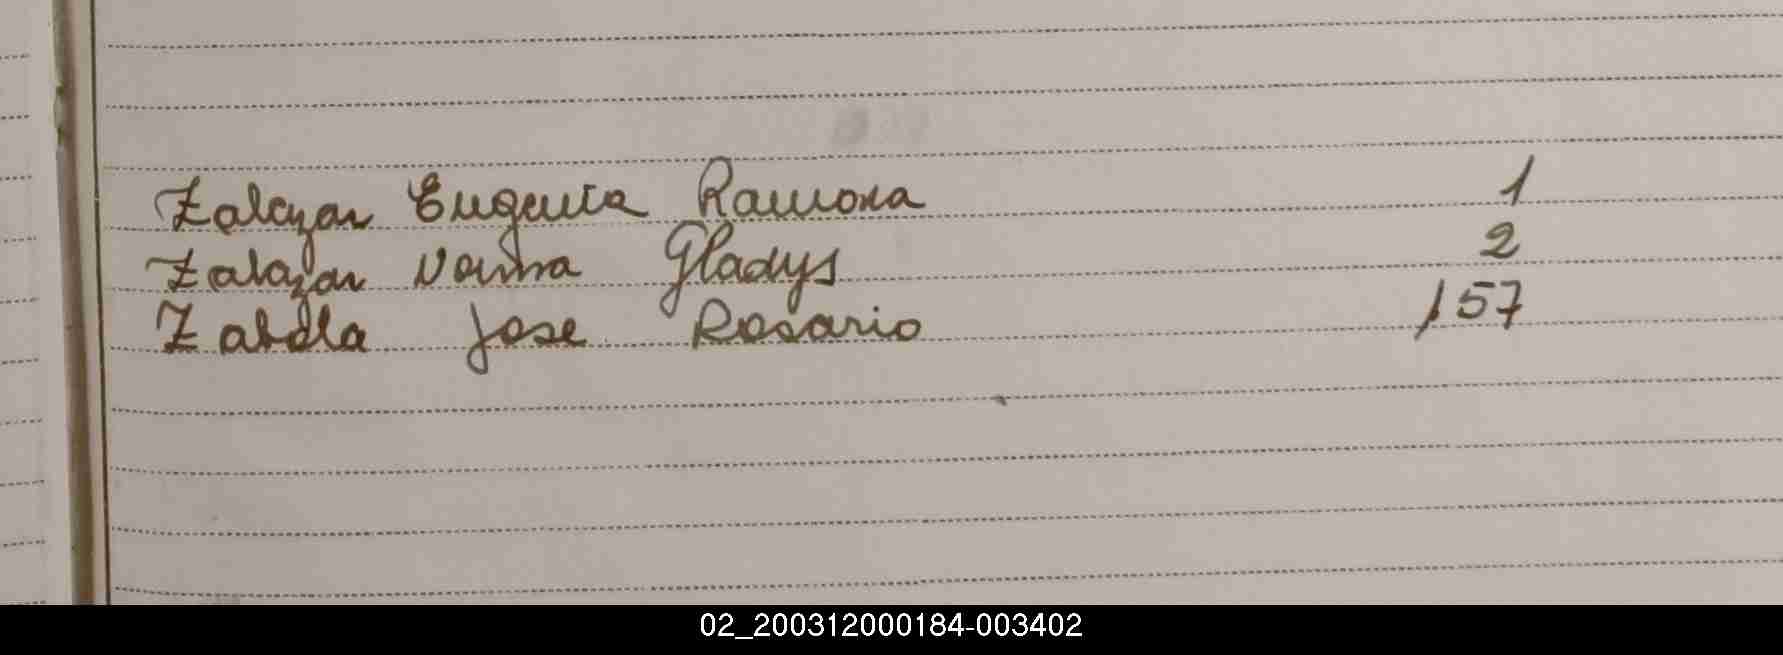 Zalazar Eugenia Ramona 1
Zalazar Norma Gladys 2
Zabala Jose Rosario 157
02_200312000184-003402